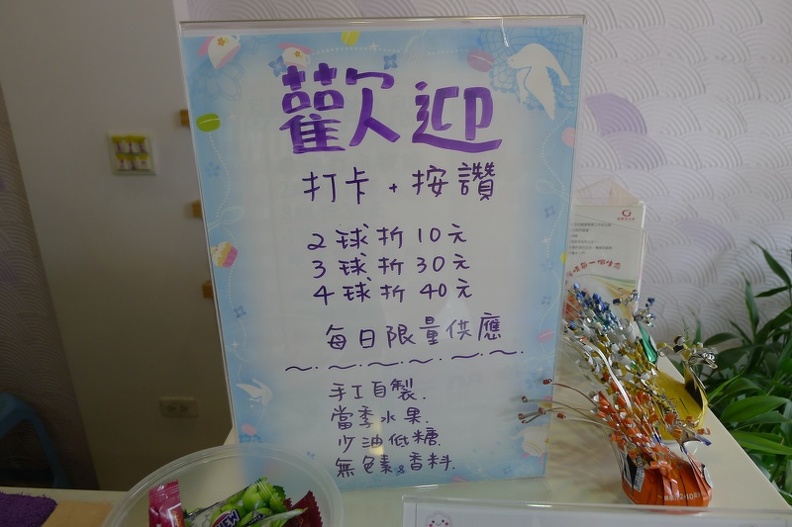 歡迎
打卡 + 按讚
2 球 折 10 元
3 球 折 30 元
4 球 折 40 元
每日限量供應
手工自製.
當季水果.
少油低糖.
無色素&香料.